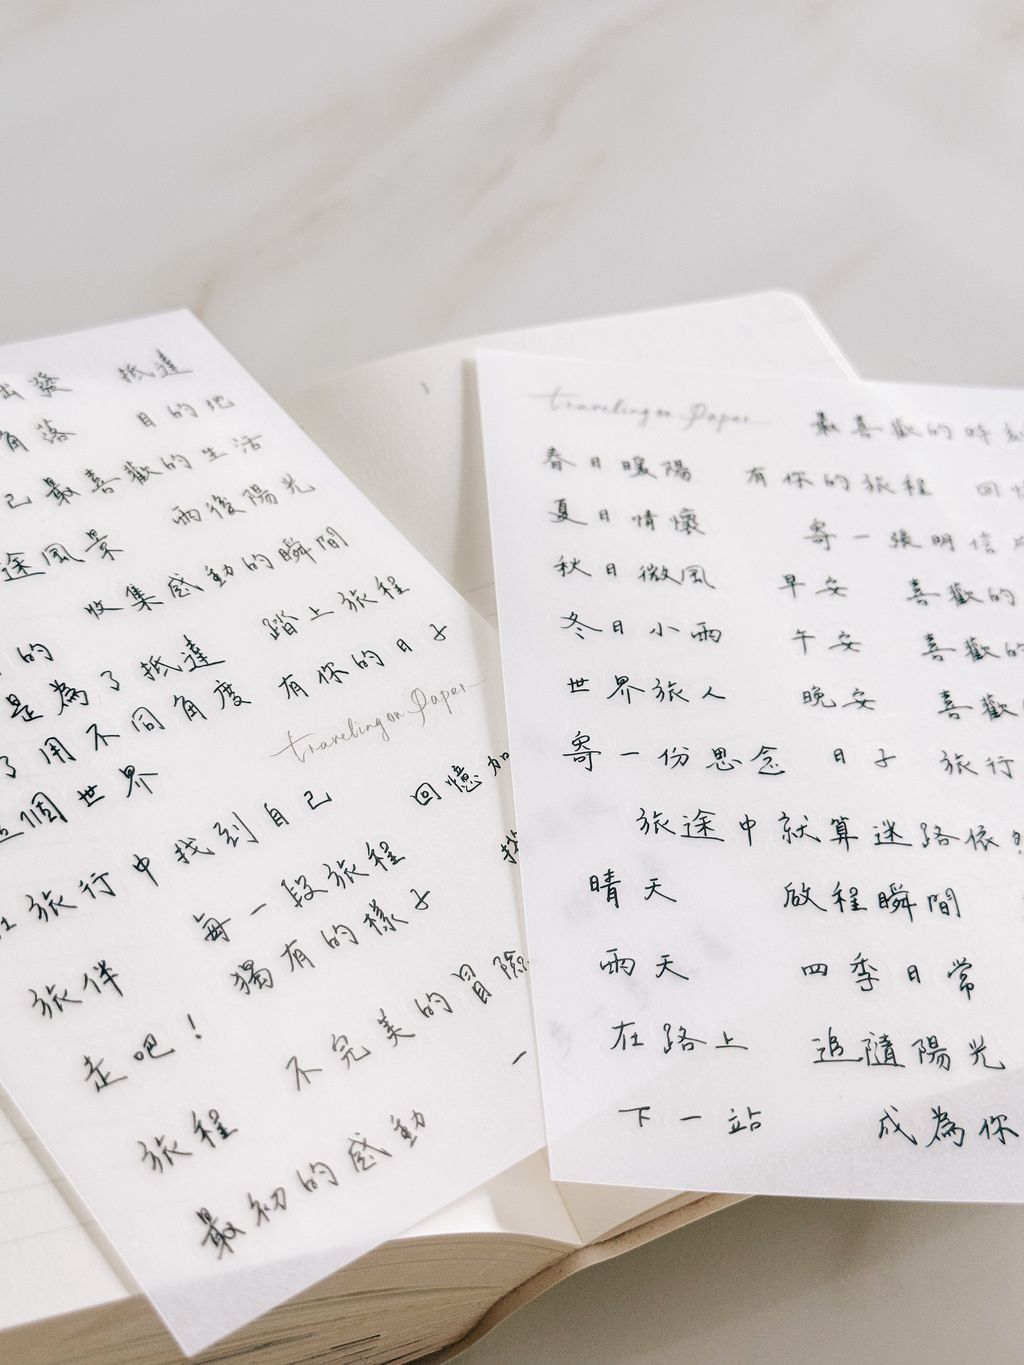 出發 抵達
角落 目的地
己最喜歡的生活
途風景 雨後陽光
收集感動的瞬間
的
是為了抵達 踏上旅程
了用不同角度 有你的日子
這個世界
traveling on Paper
在旅行中找到自己 回憶
每一段旅程
旅伴 獨有的樣子
走吧！ 不完美的冒險
旅程
最初的感動
traveling on Paper
最喜歡的時刻
春日暖陽 有你的旅程 回憶
夏日情懷 寄一張明信
秋日微風 早安 喜歡的
冬日小雨 午安 喜歡的
世界旅人 晚安 喜歡
寄一份思念 日子 旅行
旅途中就算迷路依
晴天 啟程瞬間
雨天 四季日常
在路上 追隨陽光
下一站 成為你